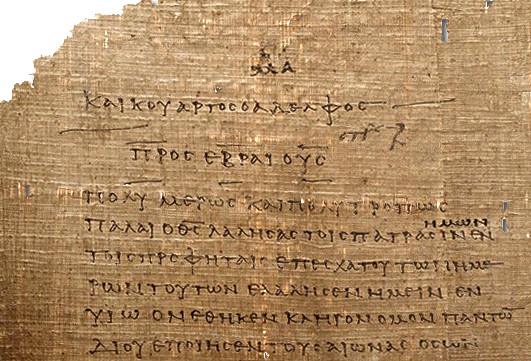 ΚΑΙΚΟΥΑΡΤΟϹΟΑΔΕΛΦΟϹ
ΠΡΟϹ ΕΒΡΑΙΟΥϹ
ΠΟΛΥΜΕΡΩϹ ΚΑΙΠΟΛΥΤΡΟΠΩϹ
ΗΜΩΝ
ΠΑΛΑΙ Ο Θ̅Ϲ̅ ΛΑΛΗϹΑϹ ΤΟΙϹ ΠΑΤΡΑϹΙΝ ΕΝ
ΤΟΙϹ ΠΡΟΦΗΤΑΙϹ ΕΠΕϹΧΑΤΟΥ ΤΩΝ ΗΜΕ
ΡΩΝ ΤΟΥΤΩΝ ΕΛΑΛΗϹΕΝ ΗΜΕΙΝ ΕΝ
ΥΙΩ ΟΝ ΕΘΗΚΕΝ ΚΛΗΡΟΝΟΜΟΝ ΠΑΝΤΩ̅
ΔΙ ΟΥ ΕΠΟΙΗϹΕΝ ΤΟΥϹ ΑΙΩΝΑϹ ΟϹ ΩΝ